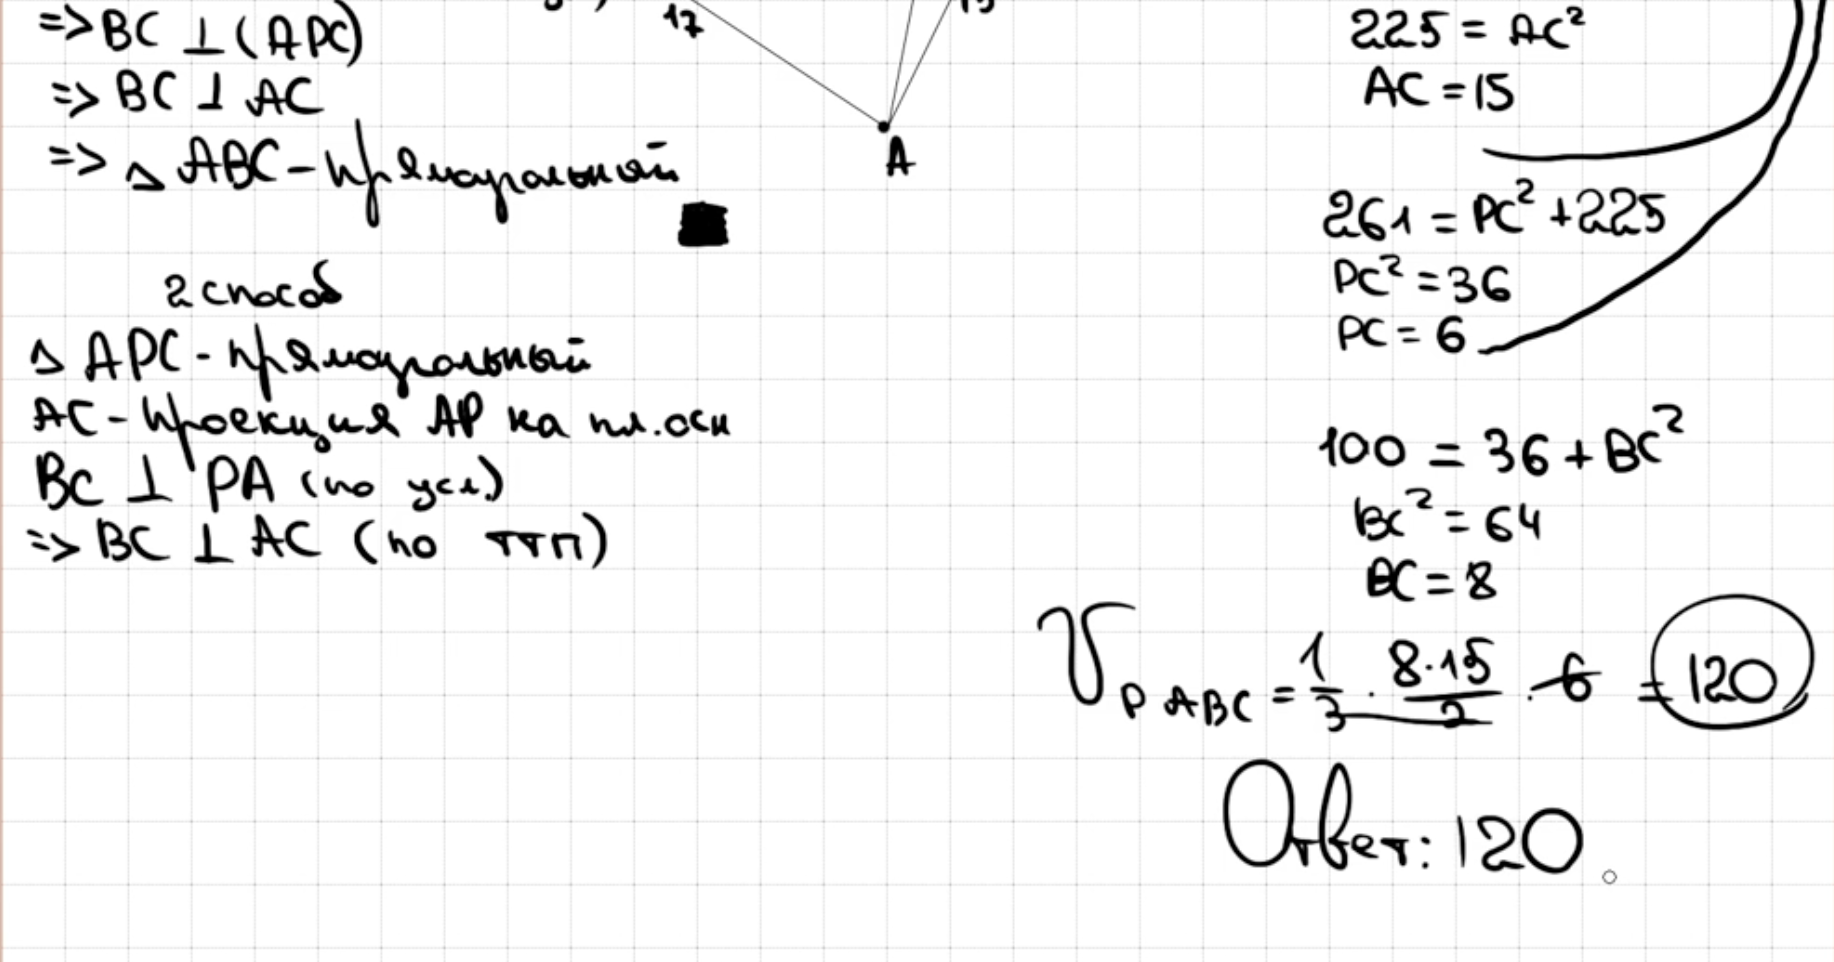 => BC ⊥ (APC)
=> BC ⊥ AC
=> △ ABC - прямоугольный
2 способ
△ APC - прямоугольный
AC - проекция AP на пл. осн
BC ⊥ PA (по усл.)
=> BC ⊥ AC (по ТТП)
17
A
225 = AC²
AC = 15
261 = PC² + 225
PC² = 36
PC = 6
100 = 36 + BC²
BC² = 64
BC = 8
V PABC = 1/3 · 8·15/2 · 6 = 120
Ответ: 120